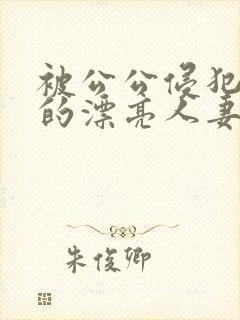 被公公侵犯
的漂亮人妻
朱俊卿